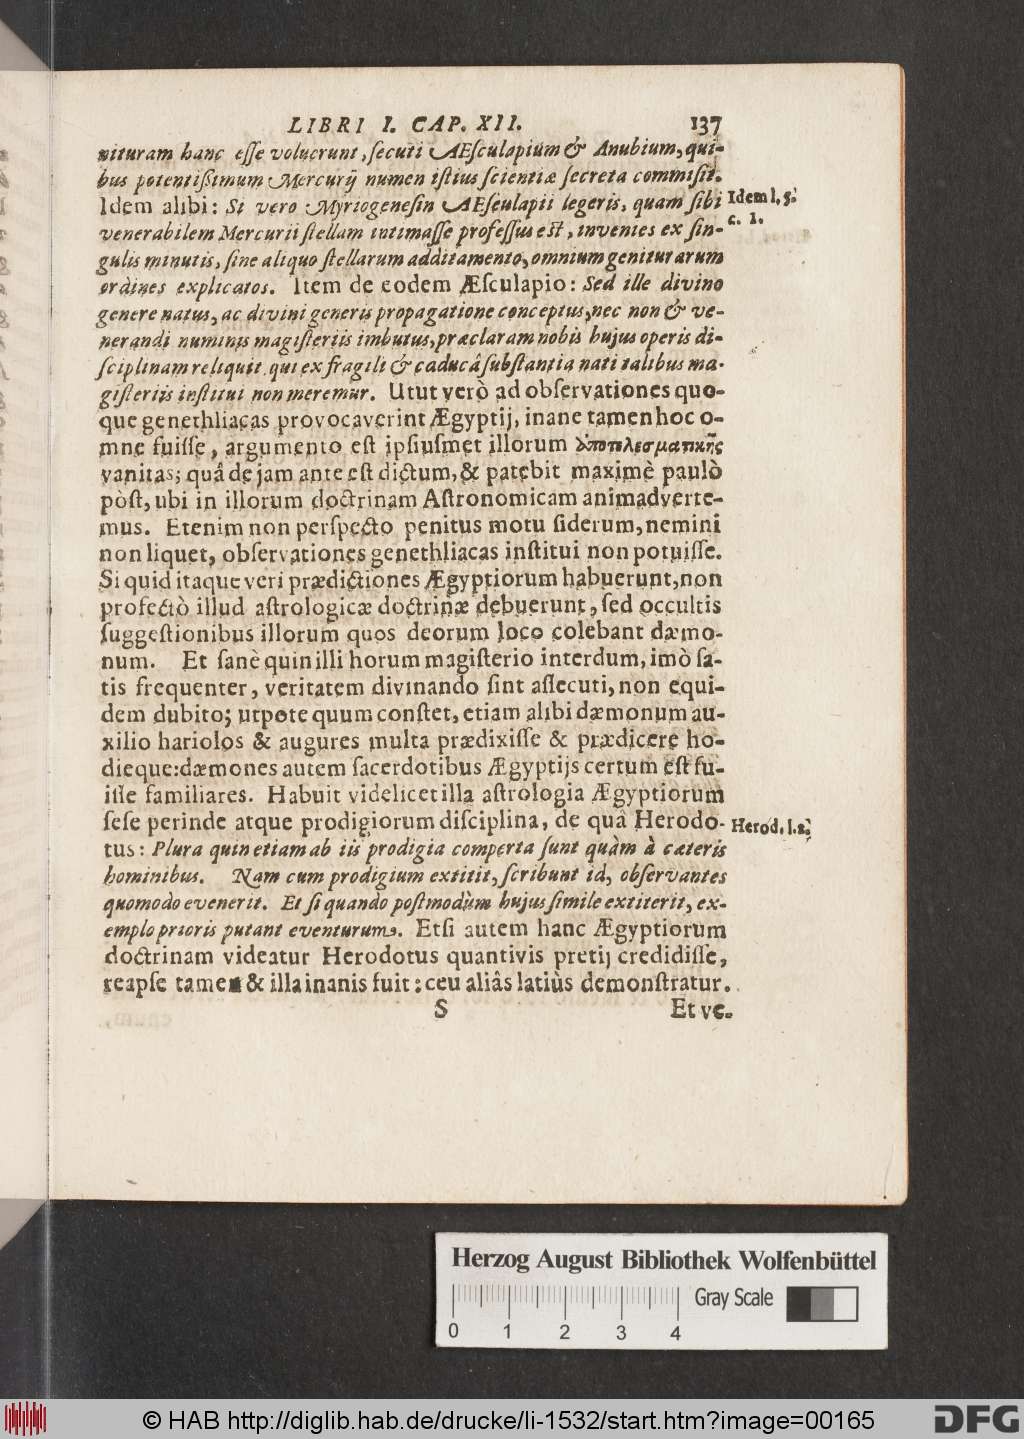 LIBRI I. CAP. XII. 137
nituram hanc esse voluerunt, secuti AEsculapium & Anubium, qui-
bus potentissimum Mercurij numen istius scientiæ secreta commisit.
Idem alibi: Si vero Myriogenesin AEsculapii legeris, quam sibi
Idem l. 5.
c. 1.
venerabilem Mercurii stellam intimasse professus est, invenies ex sin-
gulis minutis, sine aliquo stellarum additamento, omnium geniturarum
ordines explicatos. Item de eodem Æsculapio: Sed ille divino
genere natus, ac divini generis propagatione conceptus, nec non & ve-
nerandi numinis magisteriis imbutus, præclaram nobis hujus operis di-
sciplinam reliquit, qui ex fragili & caducâ substantia nati talibus ma-
gisteriis institui non meremur. Utut verò ad observationes quo-
que genethliacas provocaverint Ægyptij, inane tamen hoc o-
mne fuisse, argumento est ipsiusmet illorum ἀποτελεσματικῆς
vanitas; quâ de jam ante est dictum, & patebit maximè paulò
pòst, ubi in illorum doctrinam Astronomicam animadverte-
mus. Etenim non perspecto penitus motu siderum, nemini
non liquet, observationes genethliacas institui non potuisse.
Si quid itaque veri prædictiones Ægyptiorum habuerunt, non
profectò illud astrologicæ doctrinæ debuerunt, sed occultis
suggestionibus illorum quos deorum loco colebant dæmo-
num. Et sanè quin illi horum magisterio interdum, imò sa-
tis frequenter, veritatem divinando sint assecuti, non equi-
dem dubito; utpote quum constet, etiam alibi dæmonum au-
xilio hariolos & augures multa prædixisse & prædicere ho-
dieque: dæmones autem sacerdotibus Ægyptijs certum est fu-
isse familiares. Habuit videlicet illa astrologia Ægyptiorum
sese perinde atque prodigiorum disciplina, de quâ Herodo-
Herod. l. 2.
tus: Plura quinetiam ab iis prodigia comperta sunt quàm à cæteris
hominibus. Nam cum prodigium extitit, scribunt id, observantes
quomodo evenerit. Et si quando postmodùm hujus simile extiterit, ex-
emplo prioris putant eventurum. Etsi autem hanc Ægyptiorum
doctrinam videatur Herodotus quantivis pretij credidisse,
reapse tamen & illa inanis fuit: ceu aliâs latiùs demonstratur.
S Et ve-
Herzog August Bibliothek Wolfenbüttel
Gray Scale
0 1 2 3 4
© HAB http://diglib.hab.de/drucke/li-1532/start.htm?image=00165
DFG